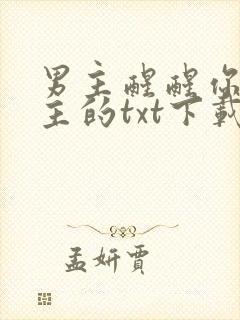 男主醒醒你
主的txt下载
孟妍賈